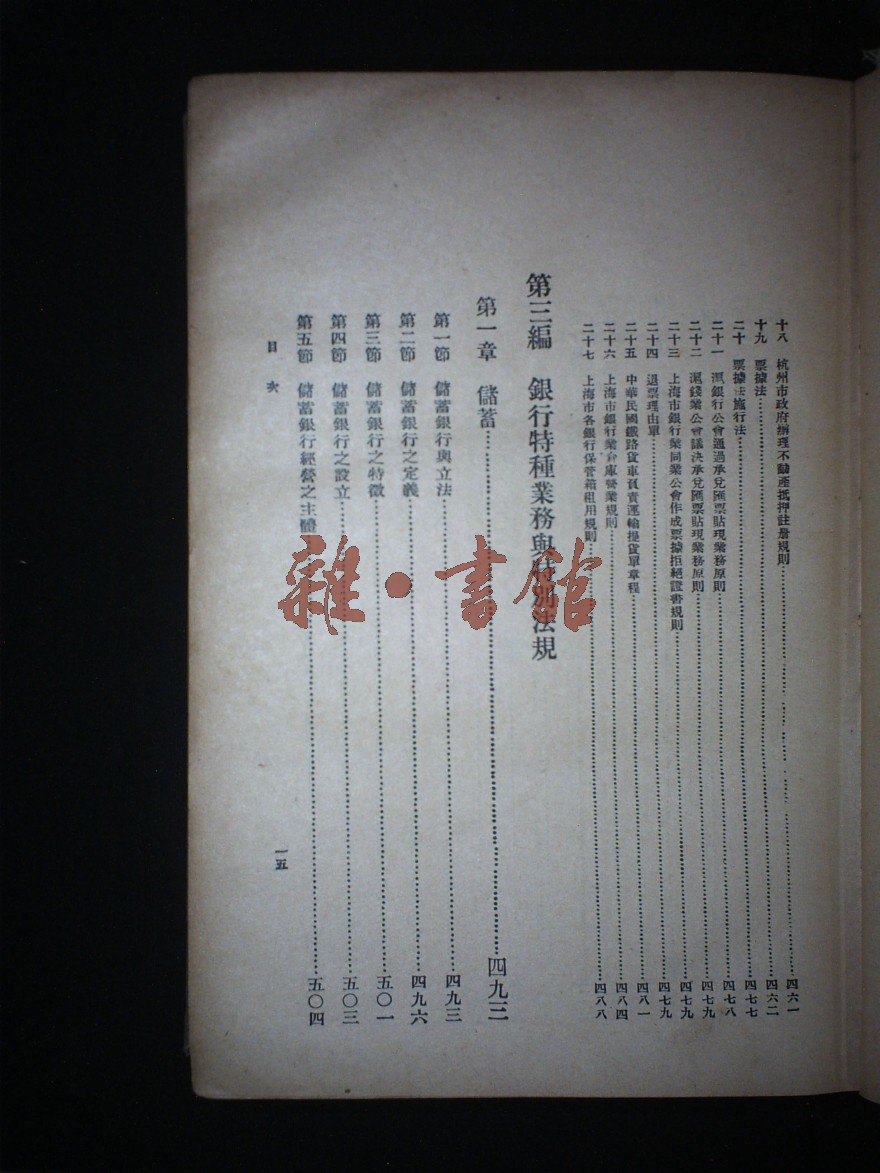 十八 杭州市政府辦理不動產抵押註册規則……四六一
十九 票據法……四六二
二十 票據法施行法……四七七
二十一 滬銀行公會通過承兌匯票貼現業務原則……四七八
二十二 滬錢業公會議決承兌匯票貼現業務原則……四七九
二十三 上海市銀行業同業公會作成票據拒絕證書規則……四七九
二十四 退票理由單……四七九
二十五 中華民國鐵路貨車負責運輸提貨單章程……四八一
二十六 上海市銀行業倉庫營業規則……四八四
二十七 上海市各銀行保管箱租用規則……四八八
第三編 銀行特種業務與特別法規
第一章 儲蓄……四九三
第一節 儲蓄銀行與立法……四九三
第二節 儲蓄銀行之定義……四九六
第三節 儲蓄銀行之特徵……五〇一
第四節 儲蓄銀行之設立……五〇三
第五節 儲蓄銀行經營之主體……五〇四
目次
一五
雜·書館